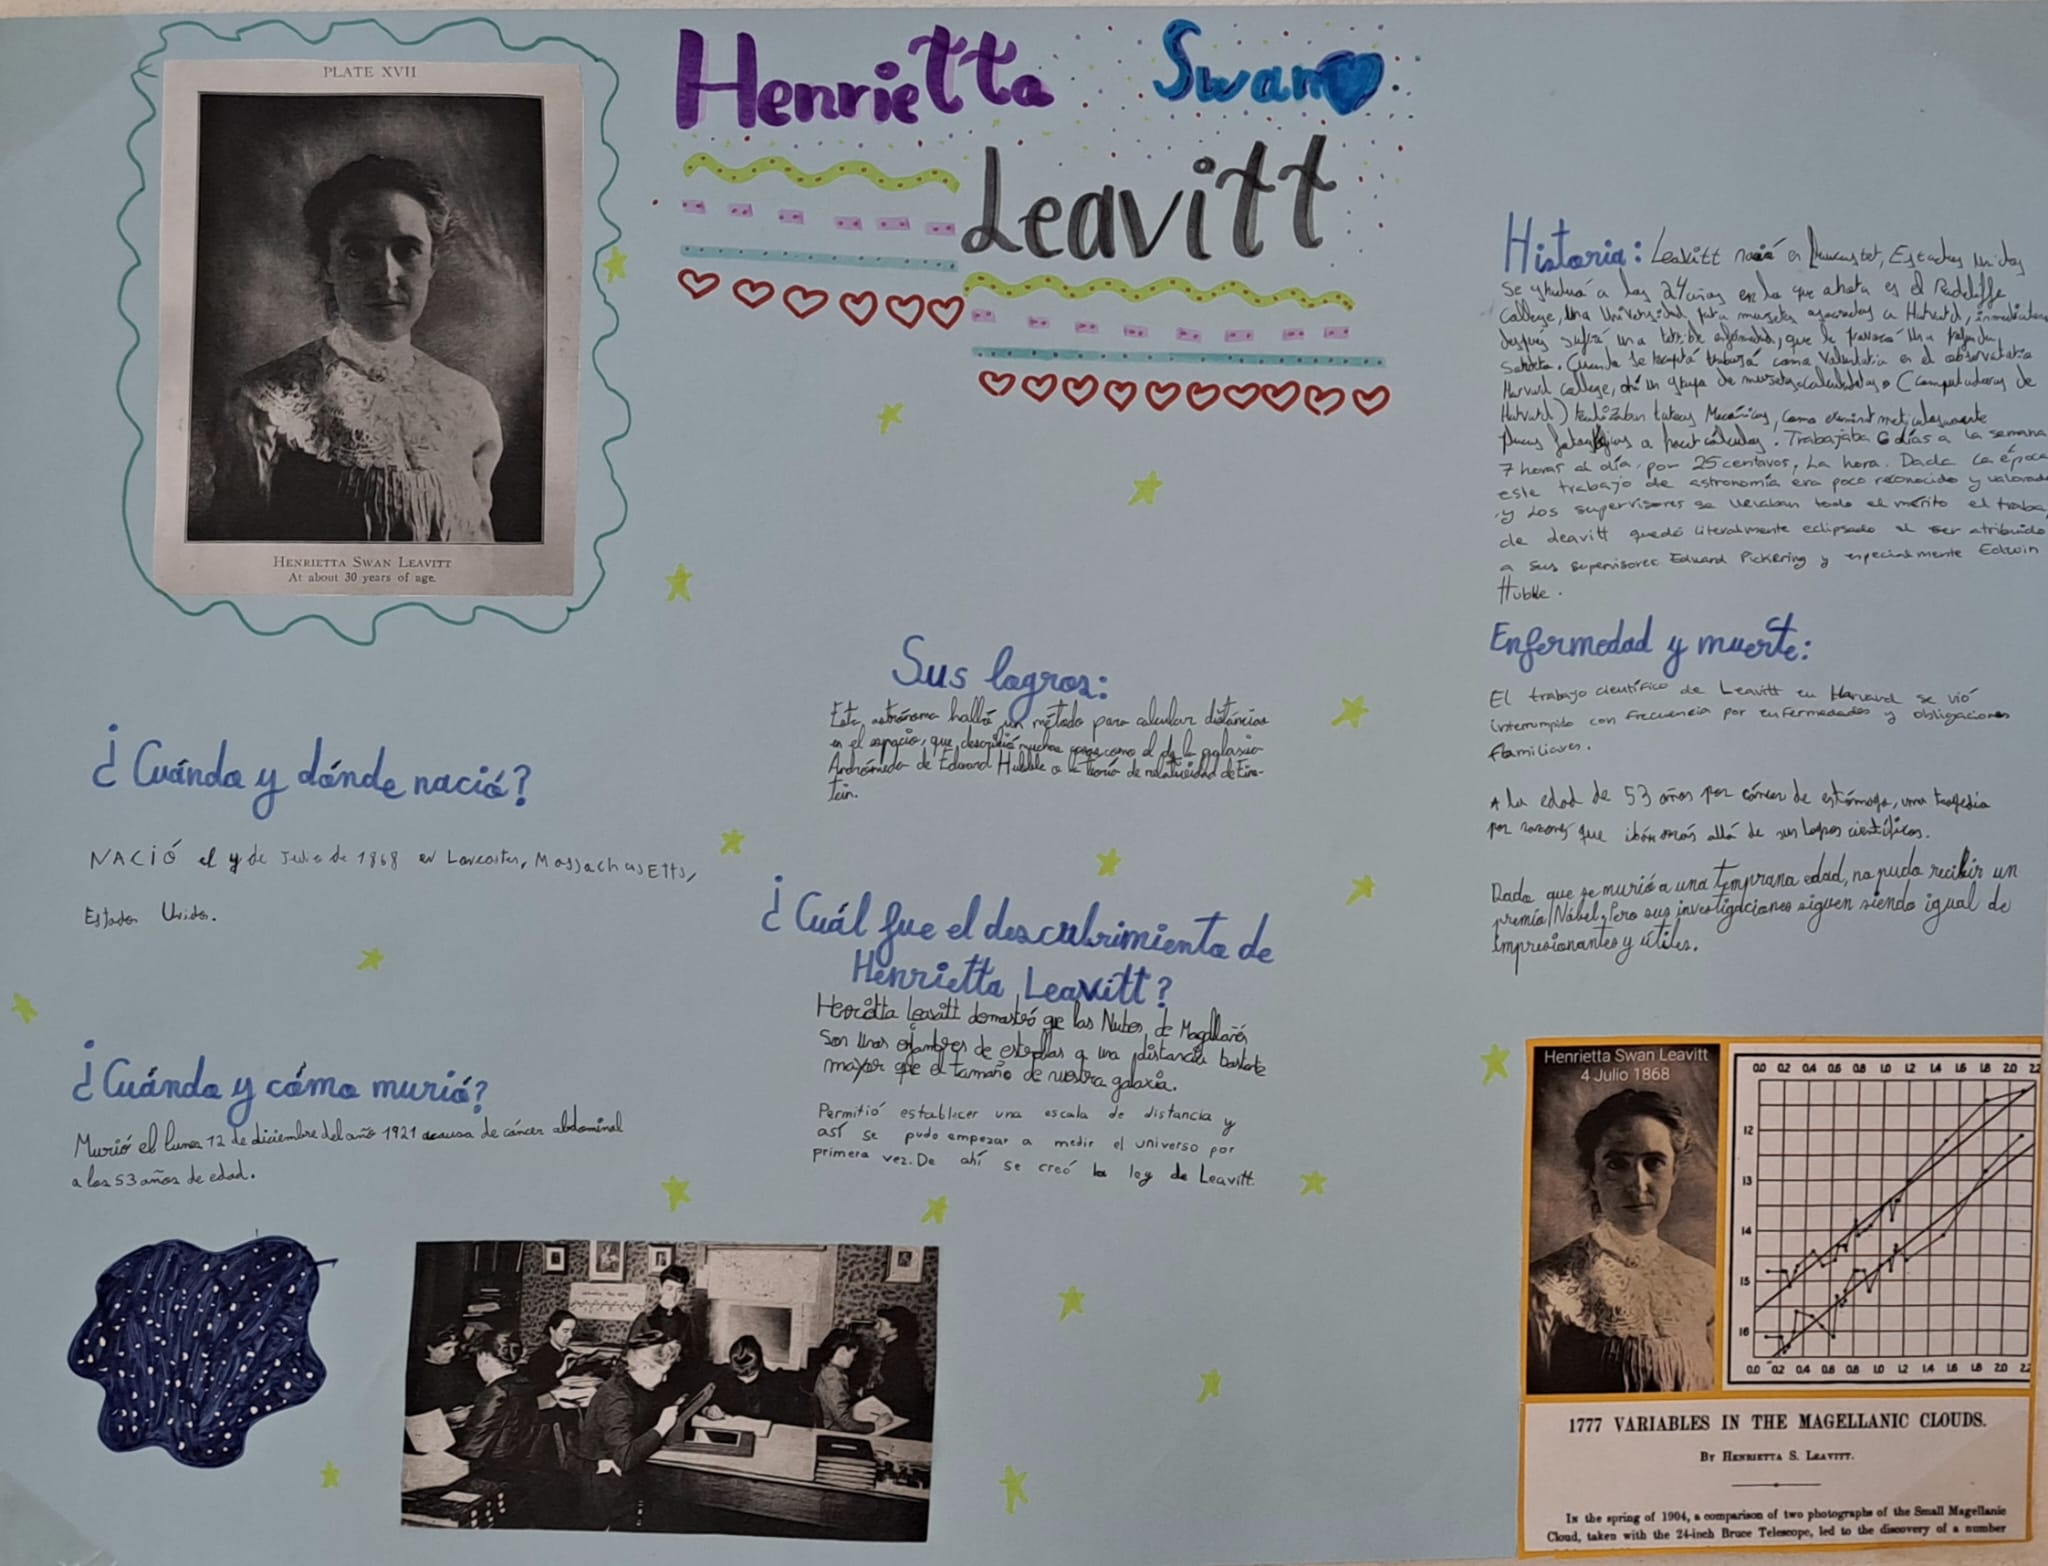 PLATE XVII
HENRIETTA SWAN LEAVITT
At about 30 years of age.
Henrietta Swan
Leavitt
¿Cuándo y dónde nació?
NACIÓ el 4 de Julio de 1868 en Lancaster, Massachusetts,
Estados Unidos.
¿Cuándo y cómo murió?
Murió el lunes 12 de diciembre del año 1921 a causa de cáncer abdominal
a los 53 años de edad.
Sus logros:
Esta astrónoma halló un método para calcular distancias
en el espacio, que describió muchas cosas como el de la galaxia
Andrómeda de Edward Hubble o la teoría de relatividad de Eins-
tein.
¿Cuál fue el descubrimiento de
Henrietta Leavitt?
Henrietta Leavitt demostró que las Nubes de Magallanes
Son unos enjambres de estrellas a una distancia bastante
mayor que el tamaño de nuestra galaxia.
Permitió establecer una escala de distancia y
así se pudo empezar a medir el universo por
primera vez. De ahí se creó la ley de Leavitt.
Historia: Leavitt nació en Estados Unidos
Se graduó a los 24 años en lo que ahora es el Radcliffe
College, una Universidad para mujeres asociadas a Harvard,
después sufrió una terrible enfermedad, que le provocó una
Sordera. Cuando se recuperó trabajó como voluntaria en el observatorio
Harvard college, de un grupo de mujeres calculadoras (computadoras de
Harvard) realizaban tareas Mecánicas, como examinar meticulosamente
placas fotográficas o hacer cálculos. Trabajaba 6 días a la semana
7 horas al día, por 25 centavos, La hora. Dada la época
este trabajo de astronomía era poco reconocido y valorado
y Los supervisores se llevaban todo el mérito el traba
de Leavitt quedó literalmente eclipsado al ser atribuido
a sus supervisores Edward Pickering y especialmente Edwin
Hubble.
Enfermedad y muerte:
El trabajo científico de Leavitt en Harvard se vió
interrumpido con frecuencia por enfermedades y obligaciones
familiares.
A la edad de 53 años por cáncer de estómago, una tragedia
por razones que iban más allá de sus logros científicos.
Dado que se murió a una temprana edad, no pudo recibir un
premio Nóbel, Pero sus investigaciones siguen siendo igual de
impresionantes y útiles.
Henrietta Swan Leavitt
4 Julio 1868
0.0 0.2 0.4 0.6 0.8 1.0 1.2 1.4 1.6 1.8 2.0 2.2
12
13
14
15
16
0.0 0.2 0.4 0.6 0.8 1.0 1.2 1.4 1.6 1.8 2.0 2.2
1777 VARIABLES IN THE MAGELLANIC CLOUDS.
BY HENRIETTA S. LEAVITT.
In the spring of 1904, a comparison of two photographs of the Small Magellanic
Cloud, taken with the 24-inch Bruce Telescope, led to the discovery of a number